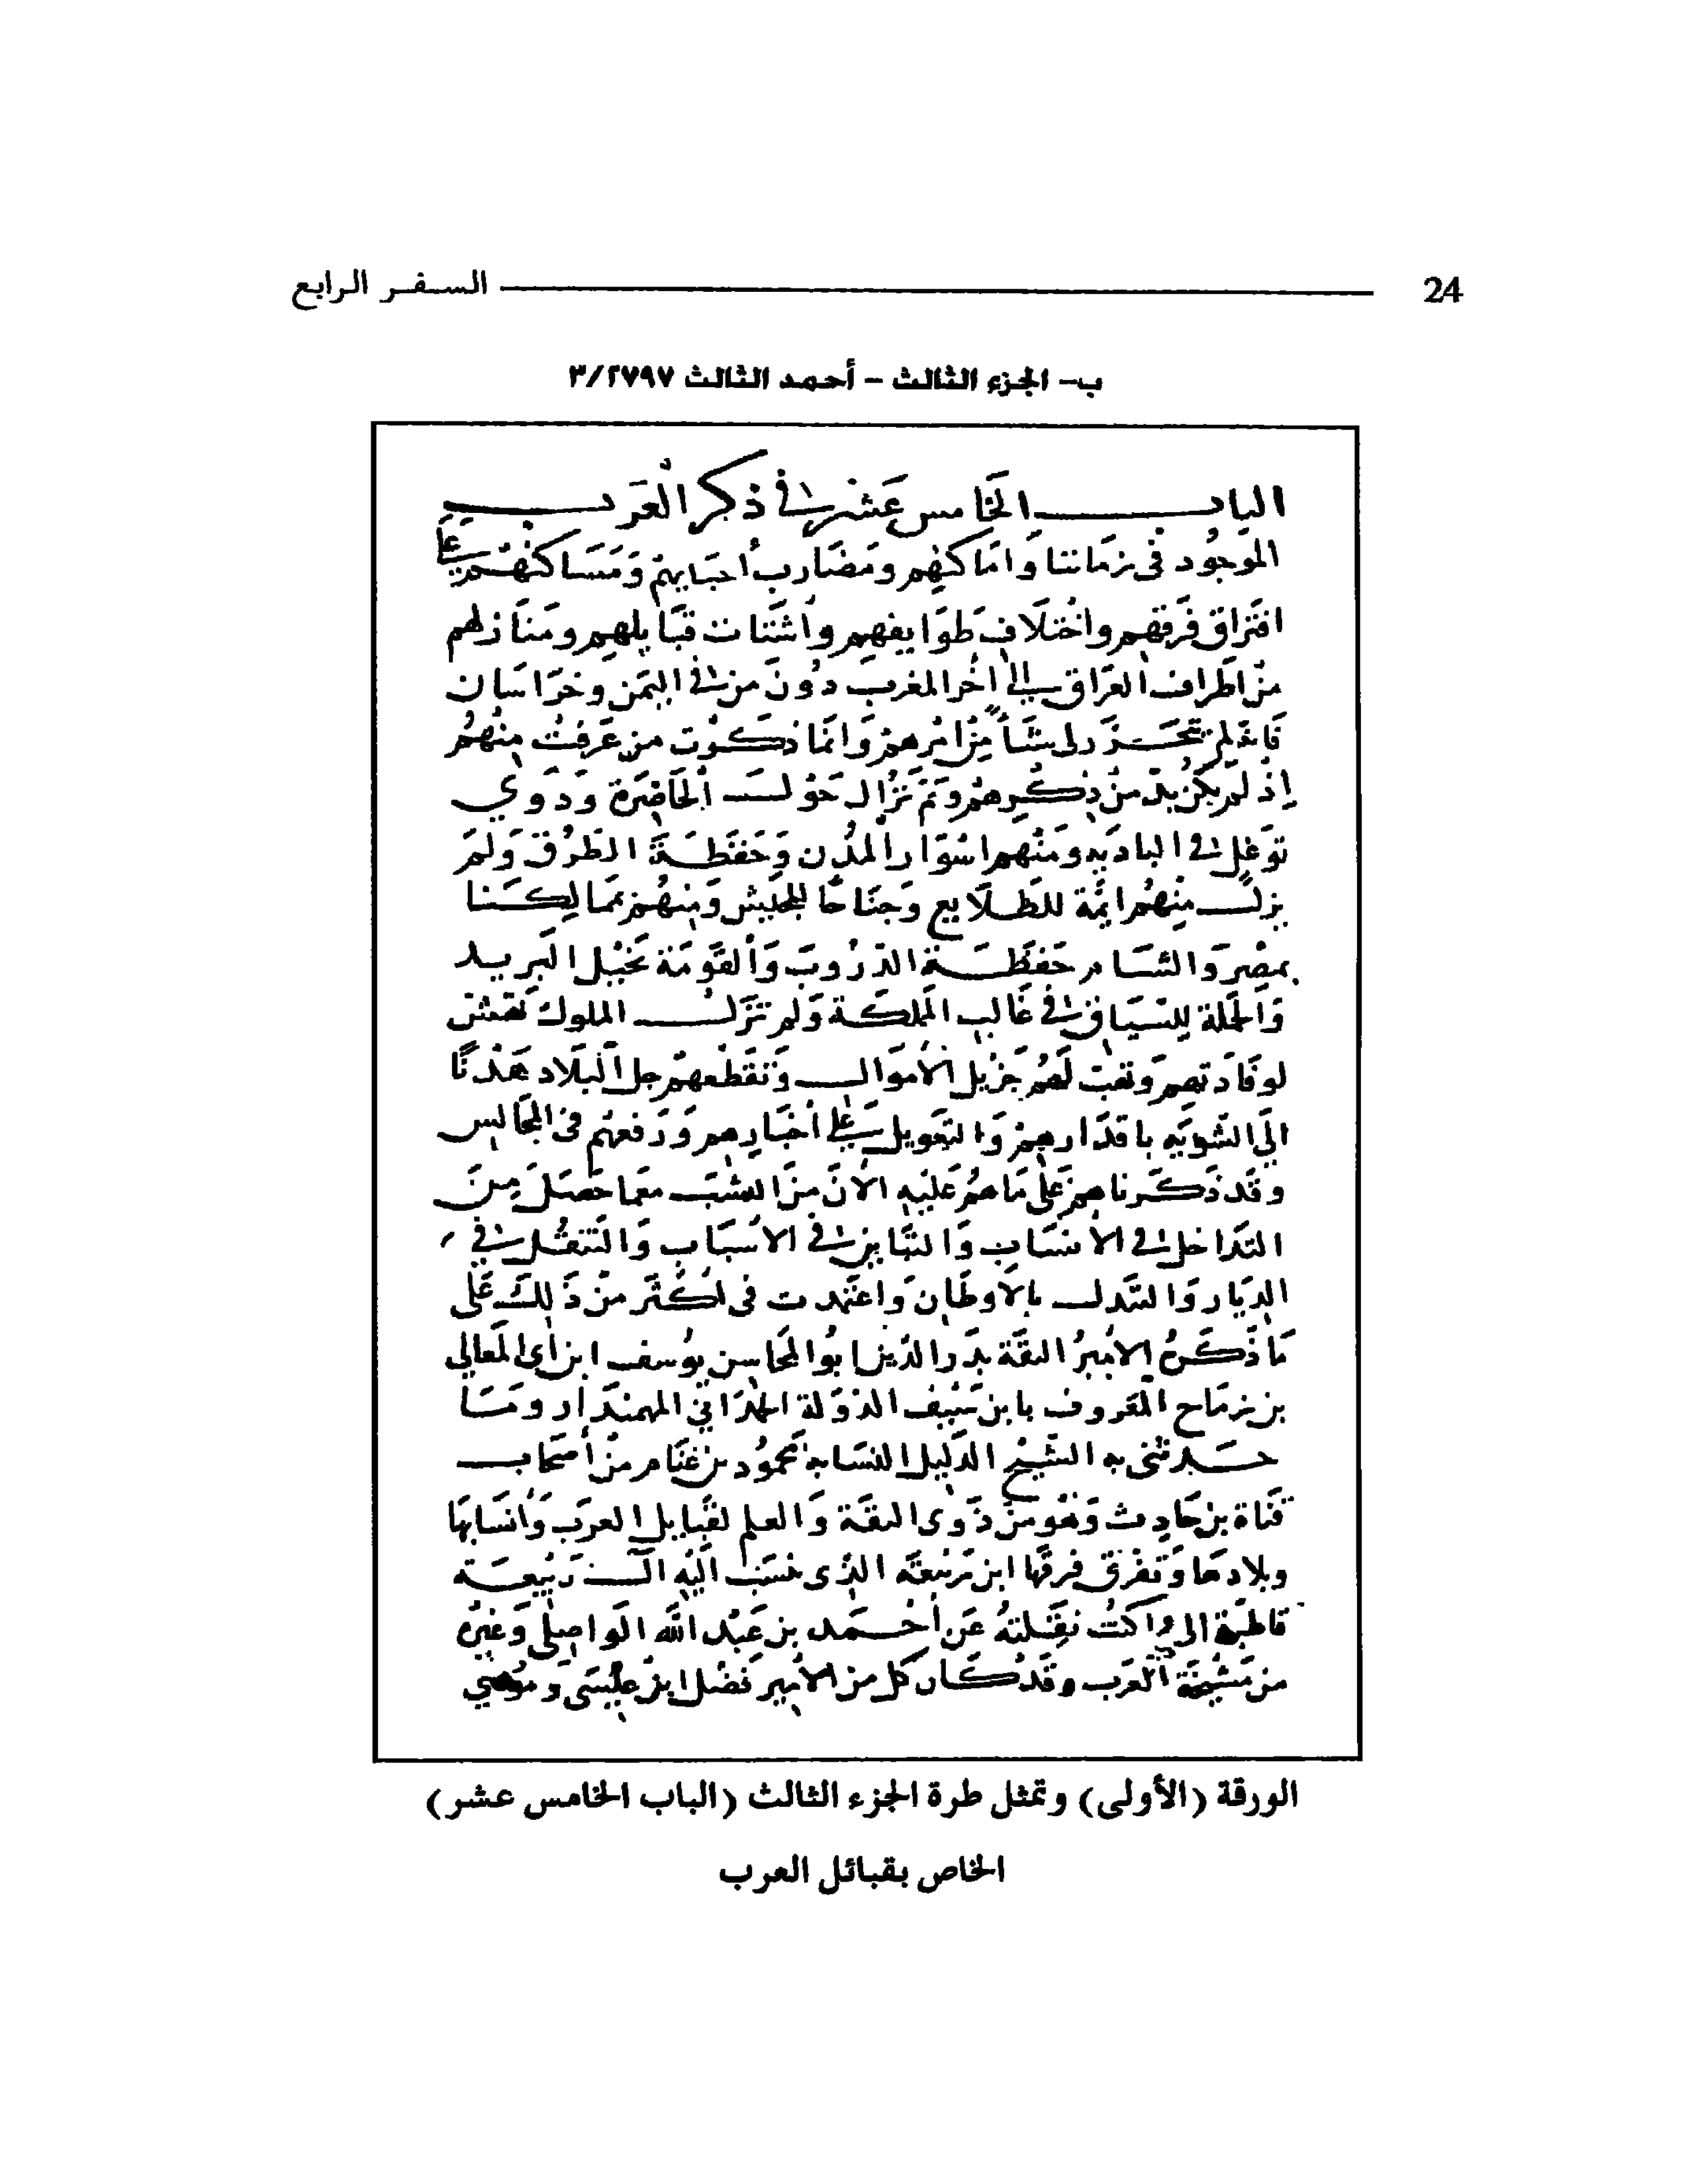 24 السفر الرابع
ب- الجزء الثالث - أحمد الثالث ٣/٢٧٩٧
الباب الخامس عشر في ذكر العرب
الموجود في زماننا واماكنهم ومضارب أحيايهم ومساكنهم على
افتراق فرقهم واختلاف طوايفهم واشتات قبايلهم ومنازلهم
من اطراف العراق إلى اخر المغرب دون من في اليمن وخراسان
فانه لم يتحرر لى شأ من امرهم وانما ذكرت من عرفت منهم
إذ لم يكن بد من ذكرهم وثم نزال حول الحاضرة وذوي
توغل في البادية ومنهم اسوار المدن وحفظة الطرق ولم
يزل منهم ايمة للطلايع وجناحا للجيش ومنهم بممالكنا
بمصر والشام حفظة الدروب والقومة بخيل البريد
والحملة للسياق في غالب المملكة ولم تزل الملوك
لوفادتهم وتهب لهم جزيل الأموال وتقطعهم جل البلاد هذا
إلى التنويه باقدارهم والتعويل على أخبارهم ورفعهم في المجالس
وقد ذكرناهم على ما هم عليه الآن من النسب معما حصل من
التداخل في الأنساب والتباين في الأسباب والتنقل في
الديار والتبدل بالأوطان واعتمدت في أكثر من ذلك على
ما ذكره الأمير الثقة بدر الدين ابو المحاسن يوسف ابن أبي المعالي
بن زماح المعروف بابن سيف الدولة الحمداني المهمندار وما
حدثني به الشيخ الدليل النسابة محمود بن غنام من أصحاب
قناة بن حارث وهو من ذوي الثقة والعلم لقبايل العرب وأنسابها
وبلادها وتفرق فرقها ابن ربيعة الذي ينسب إليه آل ربيعة
قاطبة الى ما كنت نقلته عن أحمد بن عبد الله الواصلي وغيره
من مشيخة العرب وقد كان كل من الأمير فضل ابن عيسى وموسى
الورقة (الأولى) وتمثل طرة الجزء الثالث (الباب الخامس عشر)
الخاص بقبائل العرب